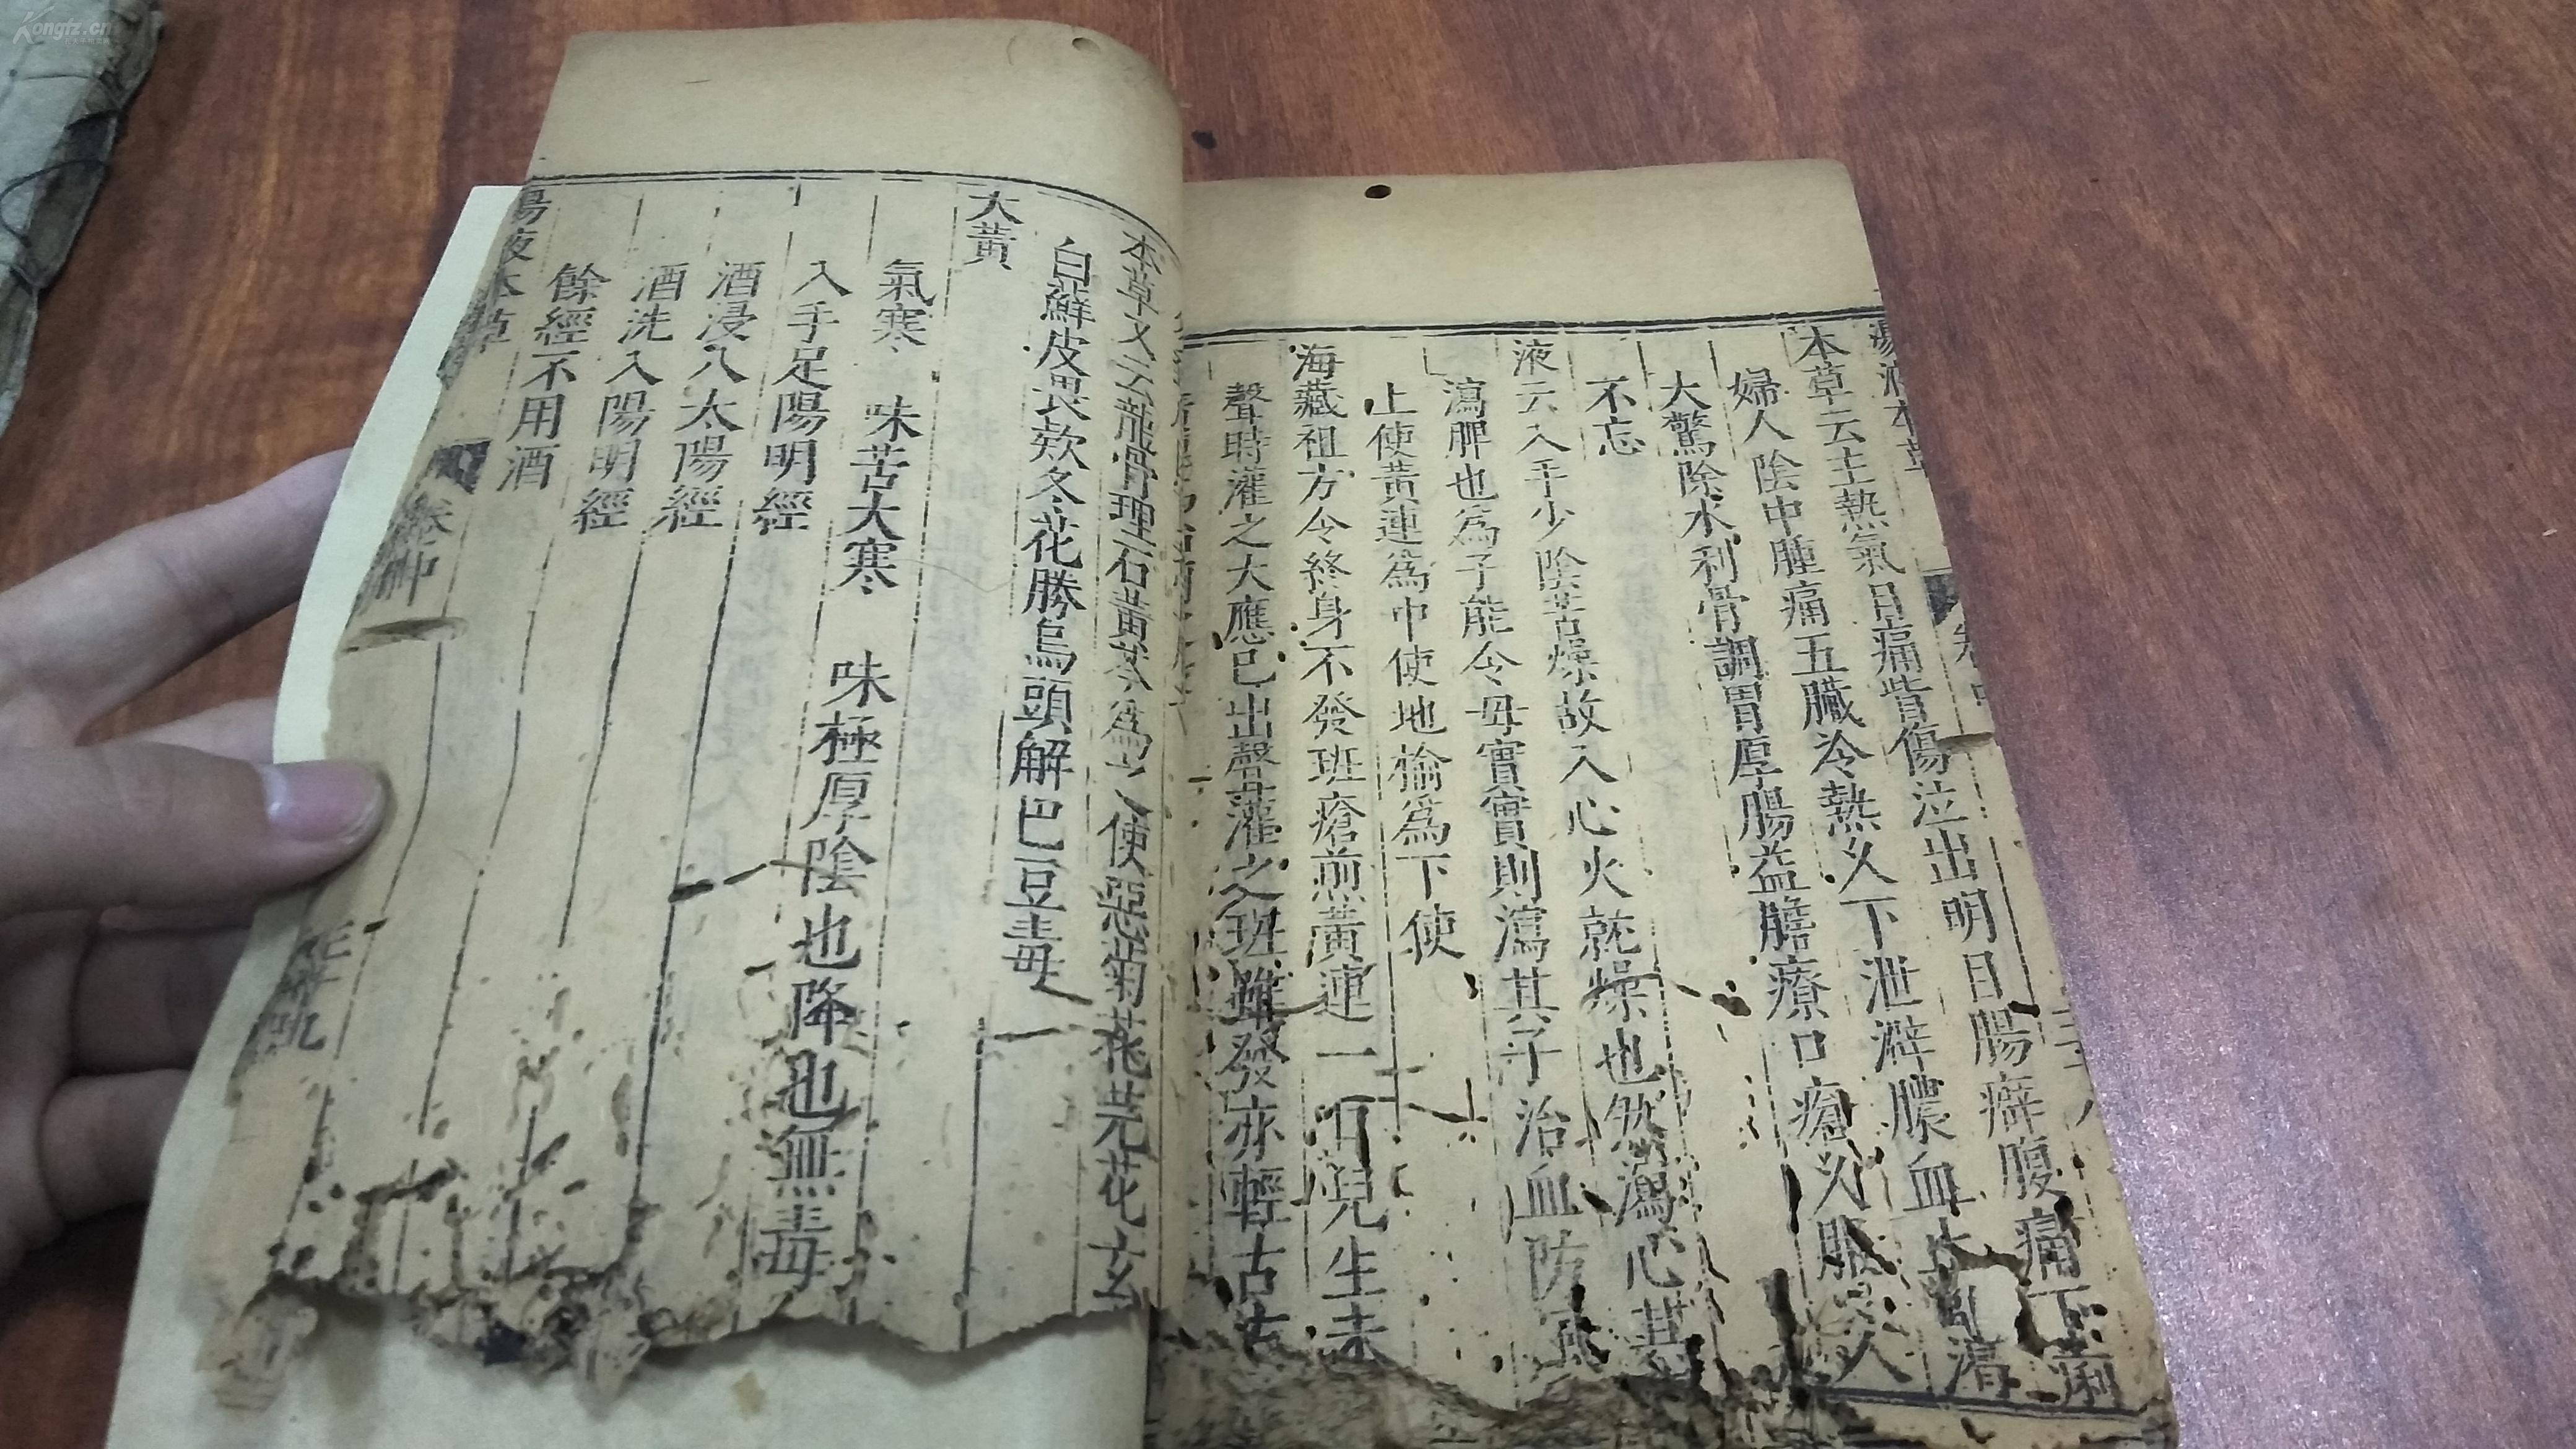 Kongfz.cn
本草
本草云主熱氣目痛眥傷泣出明目腸澼腹痛下痢
婦人陰中腫痛五臟冷熱久下泄澼膿血止消渴
大驚除水利骨調胃厚腸益膽療口瘡久服令人
不忘
液云入手少陰苦燥故入心火就燥也然瀉心其
瀉脾也為子能令母實實則瀉其子治血防風
上使黃連為中使地榆為下使
海藏祖方令終身不發班瘡煎黃連一口兒生未
聲時灌之大應已出聲灌之班雖發亦輕古
本草又云龍骨理石黃芩為之使惡菊花芫花玄
白蘚皮畏欵冬花勝烏頭解巴豆毒
大黃
氣寒 味苦大寒 味極厚陰也降也無毒
入手足陽明經
酒浸入太陽經
酒洗入陽明經
餘經不用酒
湯液本草
卷中